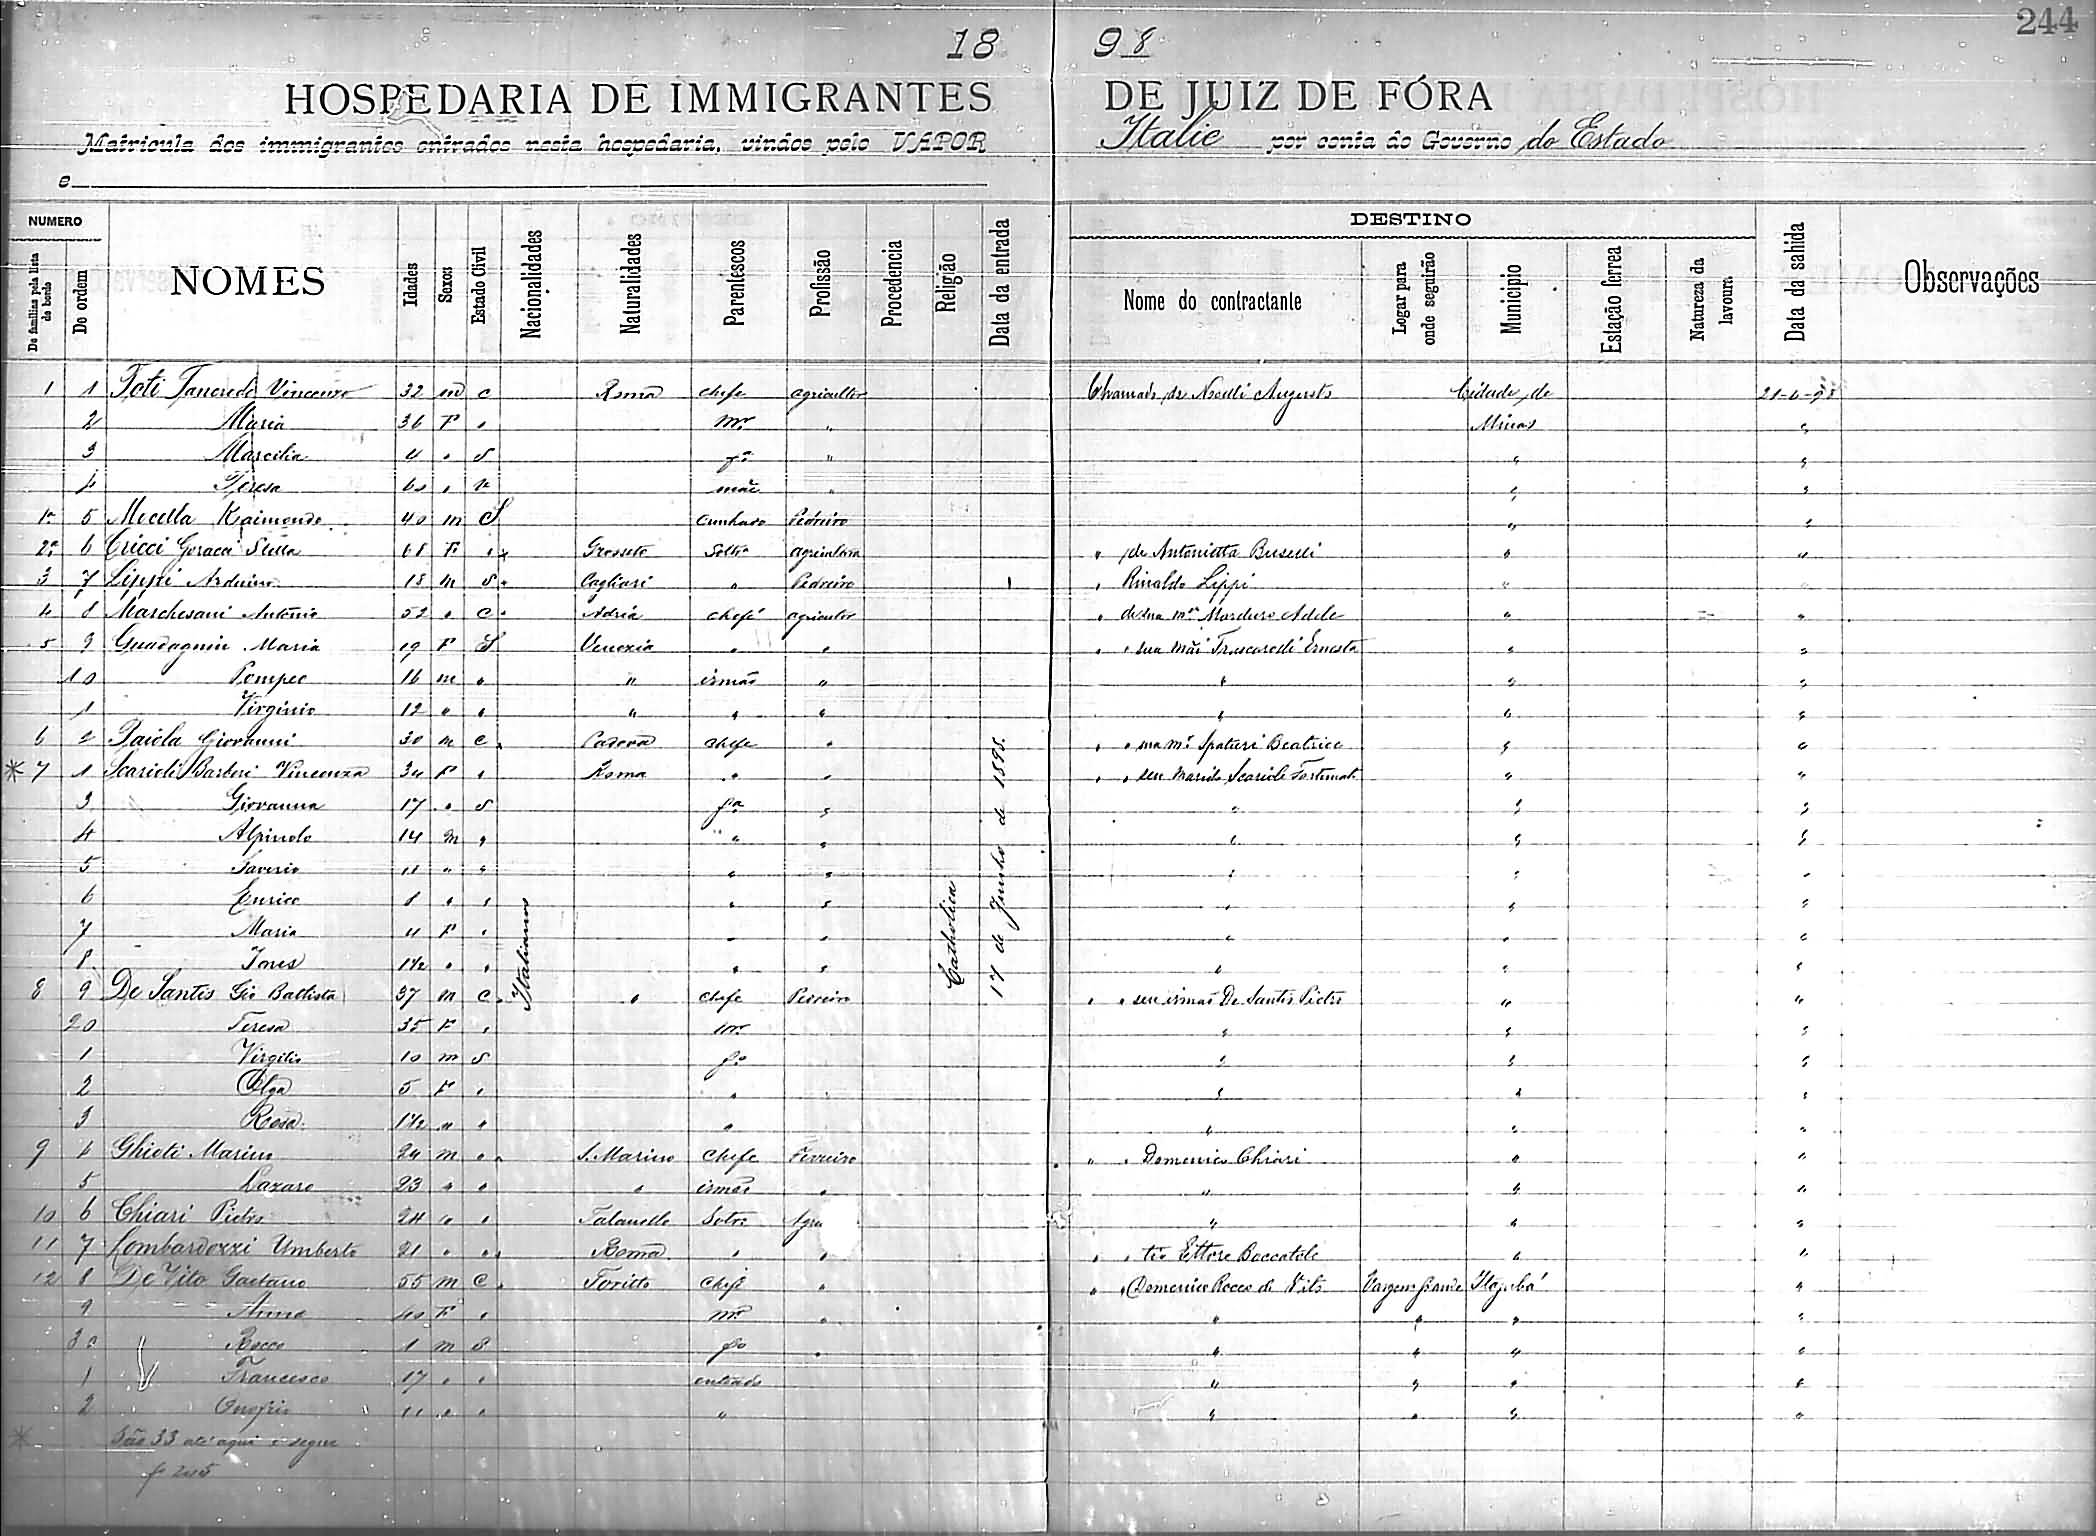 244
18 98
HOSPEDARIA DE IMMIGRANTES DE JUIZ DE FÓRA
Matricula dos immigrantes entrados nesta hospedaria, vindos pelo VAPOR Italie por conta do Governo do Estado
e
NUMERO
De familias pela lista de bordo
De ordem
NOMES
Idades
Sexos
Estado Civil
Nacionalidades
Naturalidades
Parentescos
Profissão
Procedencia
Religião
Data da entrada
DESTINO
Nome do contractante
Logar para onde seguirão
Municipio
Estação ferrea
Natureza da lavoura
Data da sahida
Observações
1 1 Toti Tancredi Vincenzo 32 m c Roma chefe agricultor Chamado de Augusto Cidade de 21-6-98
2 Maria 36 F " mr. " Minas "
3 Marcilia 4 " S fa " " "
4 Teresa 60 " v mãe " " "
5 Mecella Raimondo 40 m S cunhado Pedreiro " "
2a 6 Cricci Stella 68 F " Grosseto Solta agricultora " de Antonietta " "
3 7 Lippi Arduino 18 m S Cagliari " Pedreiro " Rinaldo Lippi " "
4 8 Marchesani Antonio 52 " C Adria chefe agricultor " de sua mer Adele " "
5 9 Guadagnin Maria 19 F S Venezia " " " " sua mãi Ernesta " "
10 Pompeo 16 m " " irmão " " " "
1 Virginio 12 " " " " " " " "
6 2 Paiola Giovanni 30 m C Padova chefe " " " sua mr Beatrice " "
* 7 1 Scarioli Barberi Vincenza 34 F " Roma " " " " seu marido Scarioli Fortunato " "
3 Giovanna 17 " S fa " " " "
4 14 m " " " " " "
5 Saverio 11 " " " " " " "
6 Enrico 8 " " " " " " "
7 Maria 4 F " " " " " "
8 Ines 1 1/2 " " " " " " "
8 9 De Santis Gio Battista 37 m C " chefe Pedreiro " " seu irmão De Santis Pietro " "
20 Teresa 35 F " mr. " " "
1 Virgilio 10 m S fo " " "
2 Olga 5 F " " " " "
3 Rosa 1 1/2 " " " " " "
9 4 Ghioti Marino 24 m " S. Marino chefe Ferreiro " " Domenico Chiari " "
5 Lazaro 23 " " " irmão " " " "
10 6 Chiari Pietro 24 " " Soltro Agri " " "
11 7 Lombardozzi Umberto 21 " " Roma " " " " tio Ettore " "
12 8 De Vito Gaetano 55 m C Toritto chefe " " " Domenico Rocco de Vito Vargem Grande Itajubá "
9 Anna 40 F " mr. " " " " "
30 Rocco 1 m S fo " " " " "
1 Francesco 17 " " enteado " " " "
2 Onofrio 11 " " " " " " "
Italianos
Catholica
17 de Junho de 1898.
* São 33 até aqui e segue
f 245